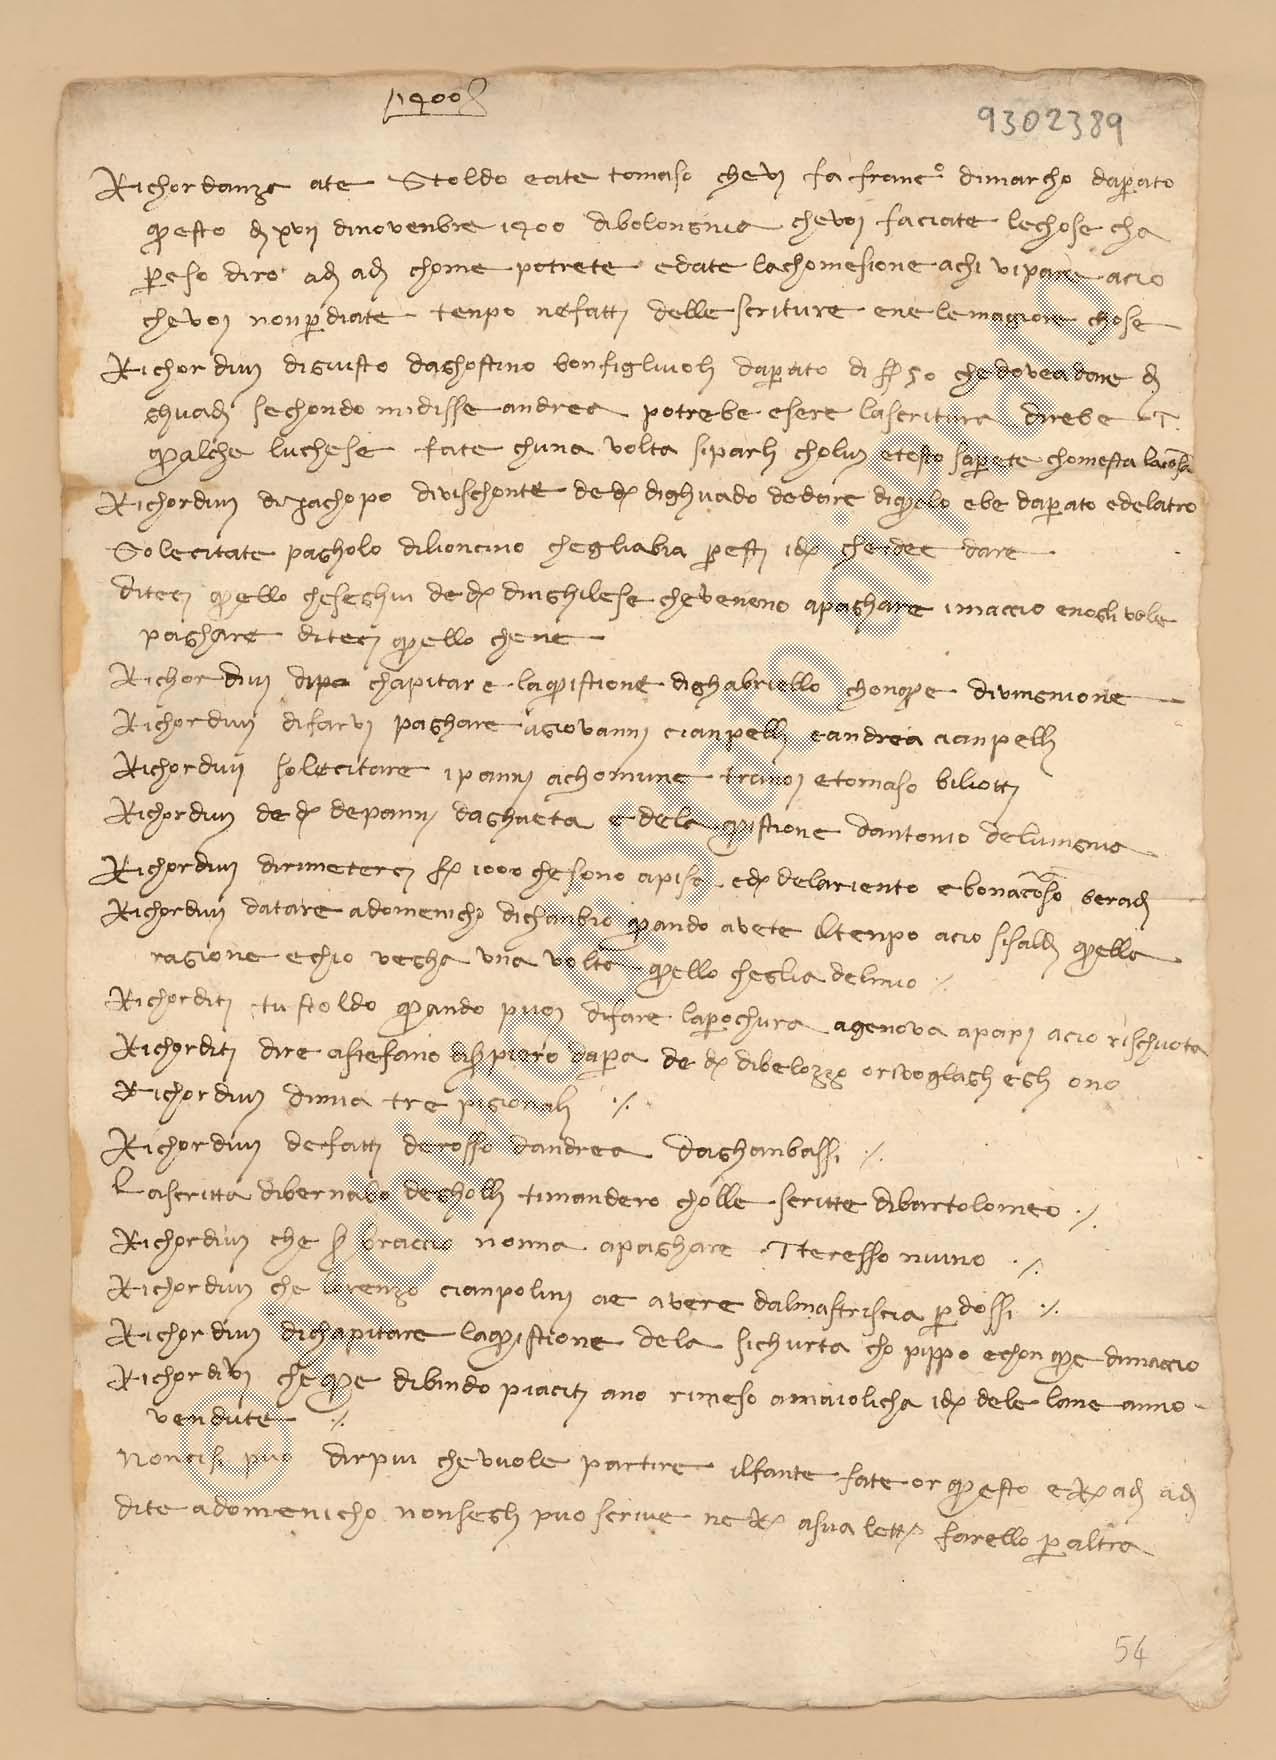 1400
9302389
Richordanze a te Stoldo e a te Tomaso che vi fa Francº di Marcho da Prato
questo dì XVII di novenbre 1400 di Bolongnia che voi faciate le chose cha
preso dirò a dì a dì chome potrete e date la chomesione a chi vi pare acio
che voi non perdiate tenpo ne fatti delle scriture e ne le magiore chose
Richordivi di Giusto d Aghostino Bonfigliuoli da Prato di fl 50 che dovea dare di
ghuadi sechondo mi disse Andrea potrebe esere la scritura direbe T.
qualche luchese fate ch una volta si parli cho lui e tosto saprete chome sta la cosa
Richordivi di Jachopo di Vischonte de d. di ghuado de dare di quelo ebe da Prato e de l atro
Solecitate Pagholo di Lioncino che gli abia presti i d. che dee dare
diteci quello che seghui de d. d Inghilese che veneno a paghare i Maccio e no gli vole
paghare diteci quello che ne
Richordivi di chapitare la quistione di Ghabriello chon que di Vingnione
Richordivi di farvi paghare a Giovanni Cianpelli e Andrea Cianpelli
Richordivi solecitare i panni a chomune tra noi e Tomaso Biliotti
Richordivi de d. de panni d Aghueta e de la quistione d Antonio de
Richordivi di rimeterci fl 1000 che sono a Pisa e d. de l ariento e Bonacorso Beradi
Richordivi d atare a Domenicho di Chanbio quando avete il tenpo acio si saldi quella
ragione e ch io vegha una volta quello che gli a del mio ./.
Richorditi tu Stoldo quando puoi di fare la prochura a Genova a Papi acio rischuota
Richorditi dire a Stefano di ser Piero da Pra de d. di Belozo or i vogla s egli o no
Richordivi di mia tre pigionali ./.
Richordivi de fatti de Rosso d Andrea da Ghanbassi ./.
La scritta di Bernabo degholli ti mandero cholle scritte di Bartolomeo ./.
Richordivi che ser Braccio non na a paghare Tteresso niuno ./.
Richordivi che Lorenzo Cianpolini ae avere d Almastriscia per dossi ./.
Richordivi di chapitare la quistione de la sichurta cho Pippo e chon que di Maccio
Richordivi che que di Bindo Piaciti ano rimeso a Maiolicha i d. de le lane anno
vendute ./.
Non ci si puo dir piu che vuole partire il fante fate or questo e R. a dì a dì
dite a Domenicho non se gli puo scrive ne R. a sua lett. farello per altra
54